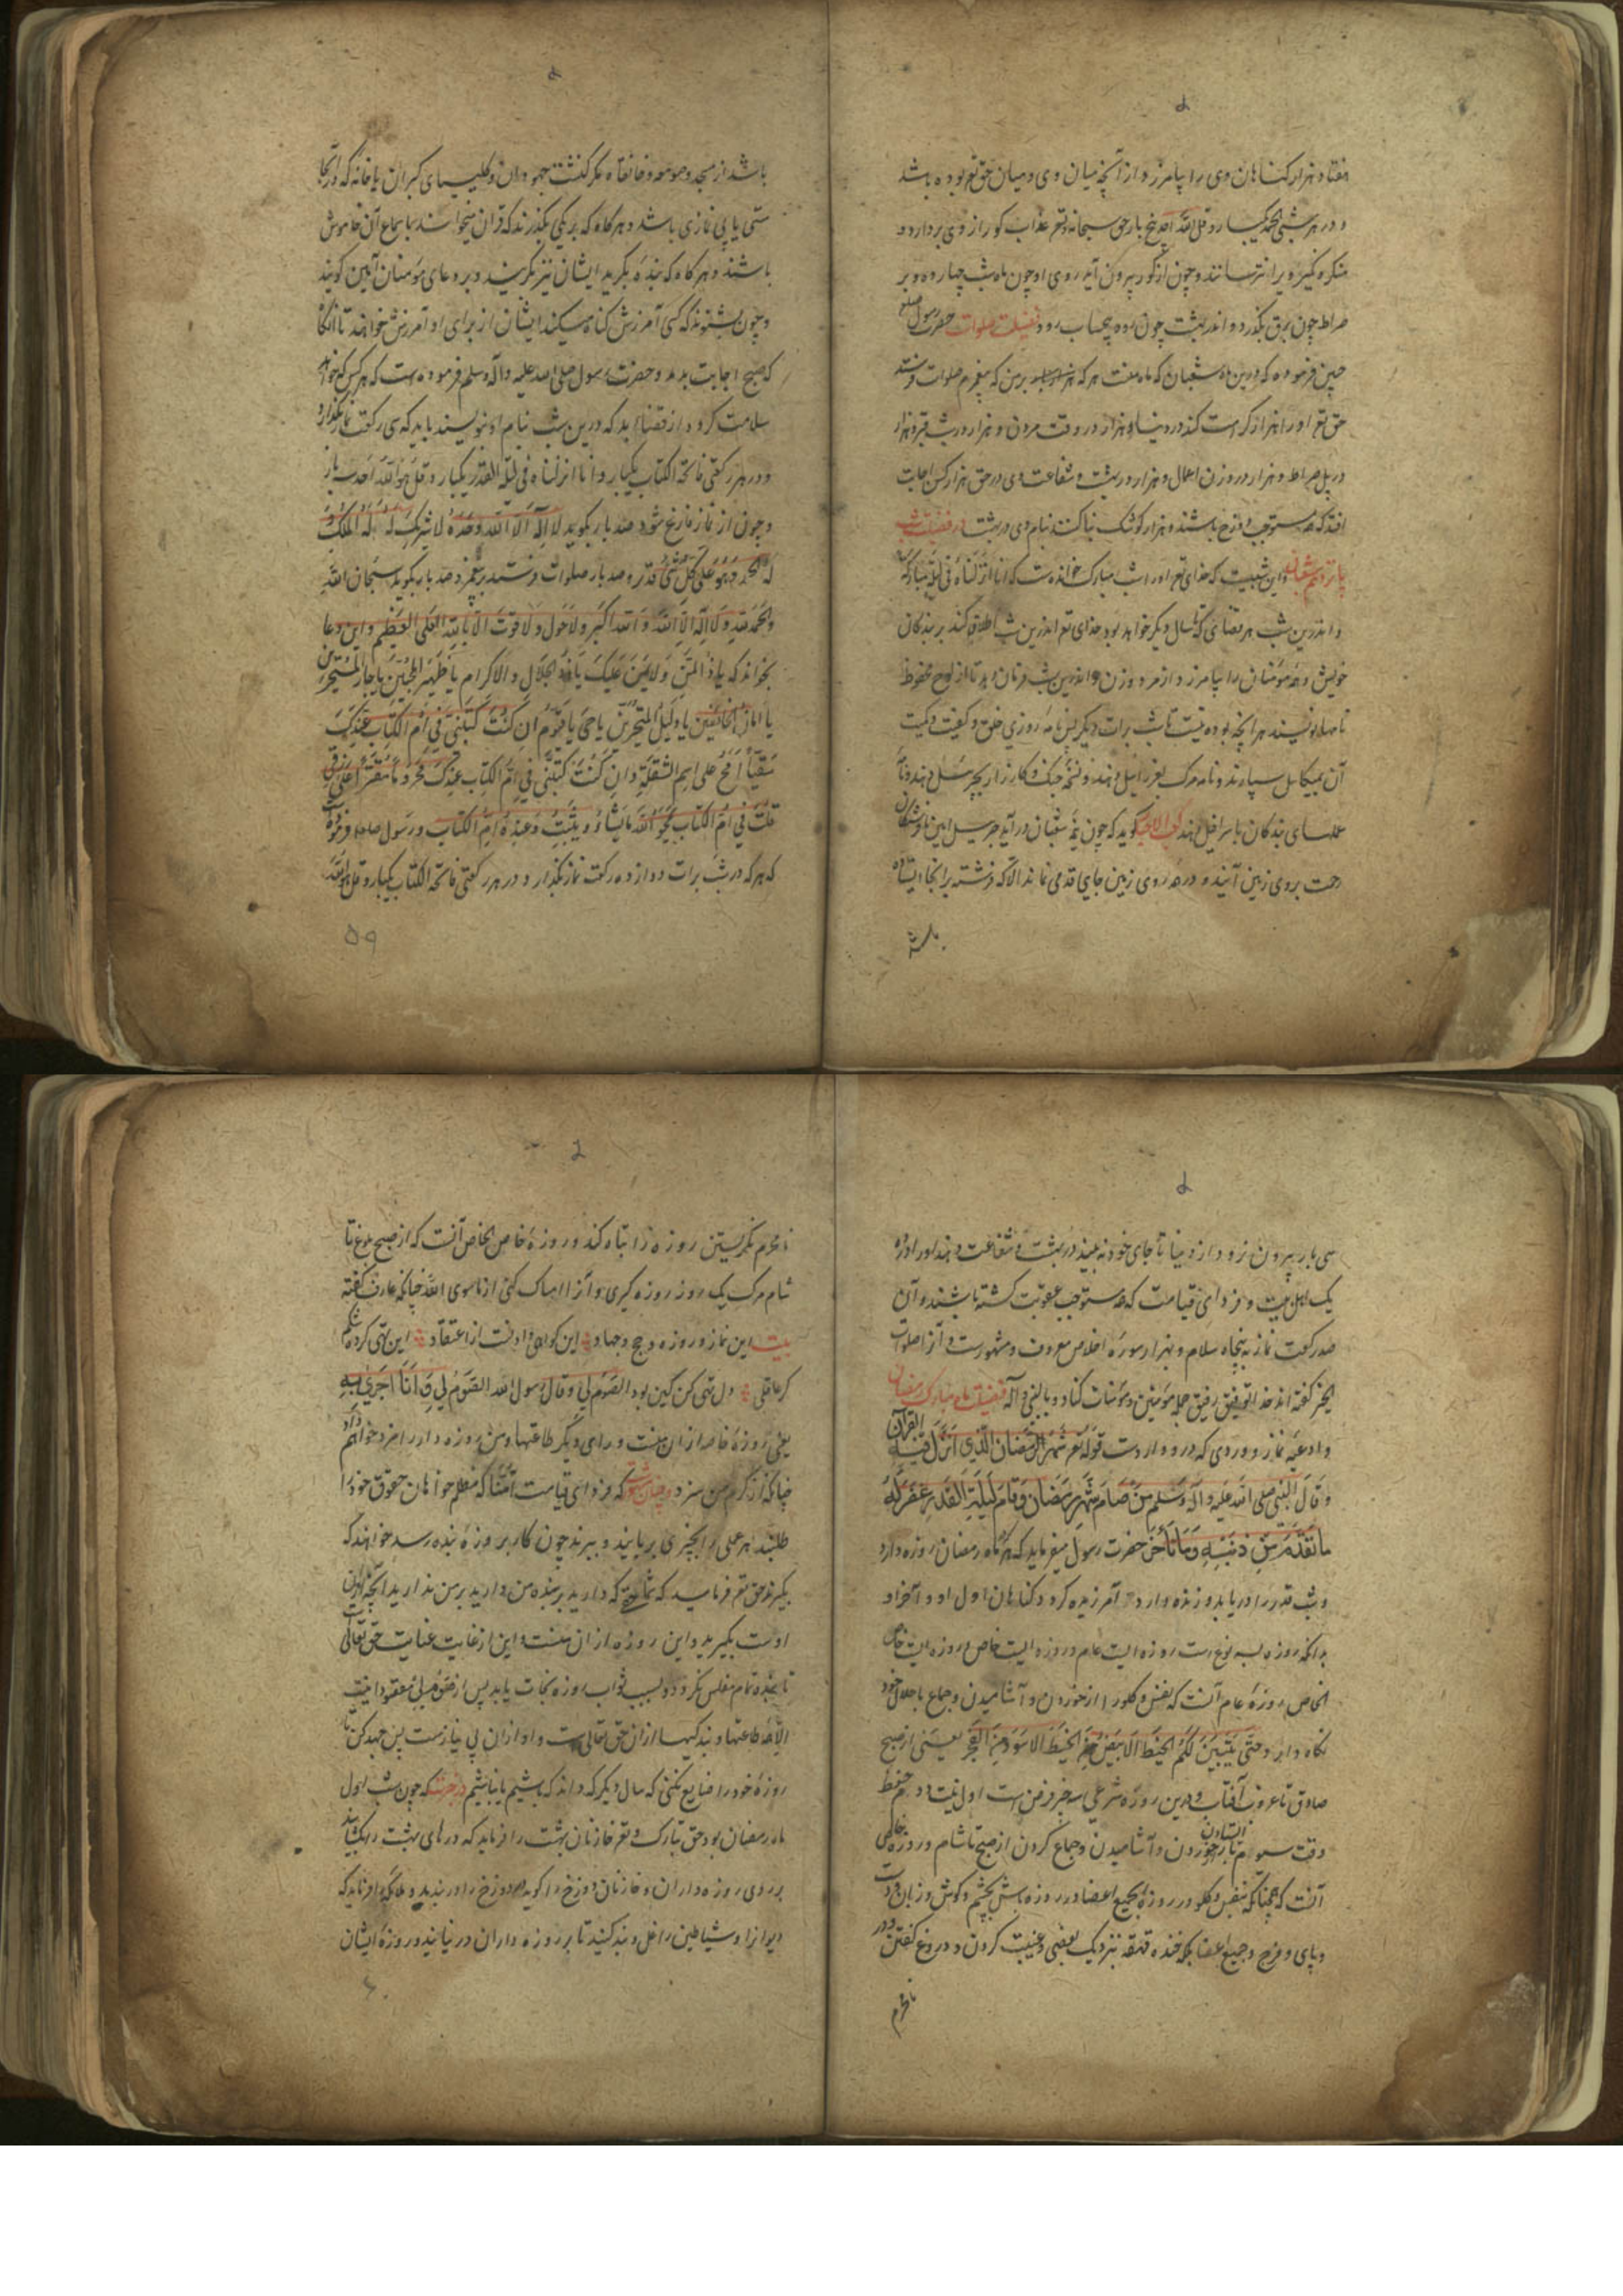 هفتاد هزار کناهان وی را بیامرزد از آنچه میان وی و میان حق تع بوده باشد
و در هر شبی الحمد یکبار و قل الله احد پنج بار حق سبحانه و تع عذاب کور از وی بردارد و
منکر و نکیر ویرا نترسانند و چون از کور بیرون آید روی او چون ماه شب چهارده و بر
صراط چون برق بگذرد و اندر بهشت چون رود بیحساب رود فضیلت صلوات حضرت رسول صلعم
چنین فرموده که درین ماه شعبان که ماه منست هر که هزار بار بر من که پیغمبرم صلوات فرستد
حق تع او را هزار کرامت کند در دنیا و هزار در وقت مردن و هزار در شب قبر و هزار
در پل صراط و هزار در وزن اعمال و هزار در بهشت و شفاعت وی در حق هزار کس اجابت
افتد که همه مستوجب دوزخ باشند و هزار کوشک بنا کنند بنام وی در بهشت در فضیلت شب
پانزدهم شعبان و این شبیست که خدای تع او را شب مبارک خوانده است که انا انزلناه فی لیلة مبارکة
و اندرین شب هر قضائی که تا سال دیکر خواهد بود خدای تع اندرین شب اطلاق کند بر بندکان
خویش و همه مؤمنان را بیامرزد از مرد و زن و اندرین شب فرمان دهد تا از لوح محفوظ
نامها بنویسند هر آنچه بوده نیست تا شب برات دیکر پس نامه روزی خلق و کیفیت و کمیت
آن بمیکائیل سپارند و نامه مرک بعزرائیل دهند و نسخه جنک و کارزار بجبرئیل دهند و نامه
عملهای بندکان باسرافیل دهند کعب الاحبار کوید که چون نیمه شعبان درآید جبرئیل امین با فرشتکان
رحمت بروی زمین آیند و در همه روی زمین جای قدمی نماند الا که فرشته برانجا ایستاده
باشد
باشد از مسجد و صومعه و خانقاه مکر کنشت جهودان و کلیسیای کبران یا خانه که در آنجا
ستی یا بی نمازی باشد و هر کاه که بر یکی بگذرند که قران میخواند بسماع آن خاموش
باشند و هر کاه که بنده بگرید ایشان نیز بگریند و بر دعای مؤمنان آمین کویند
و چون بشنوند که کسی آمرزش کناه میکند ایشان از برای او آمرزش خواهند تا آنکاه
که صبح اجابت بدمد و حضرت رسول صلی الله علیه و آله وسلم فرموده است که هر کس که خواهد
سلامت کرد و از قضا بد که درین شب بنام او بنویسند باید که سی رکعت نماز بگذارد
و در هر رکعتی فاتحة الکتاب یکبار و انا انزلناه فی لیلة القدر یکبار و قل هو الله احد سه بار
و چون از نماز فارغ شود صد بار بکوید لا اله الا الله وحده لا شریک له له الملک و
له الحمد و هو علی کل شئ قدیر و صد بار صلوات فرستد بر پیغمبر و صد بار بکوید سبحان الله
والحمد لله و لا اله الا الله و الله اکبر و لا حول و لا قوة الا بالله العلی العظیم و این دعا
بخواند که یا ذا المن و لا یمن علیک یا ذا الجلال و الاکرام یا ظهیر اللاجئین یا جار المستجیرین
یا امان الخائفین یا دلیل المتحیرین یا حی یا قیوم ان کنت کتبتنی فی ام الکتاب عندک
شقیا فامح علی اسم الشقاوة و ان کنت کتبتنی فی ام الکتاب عندک محروما مقترا علی رزقی
قلت فی ام الکتاب یمحو الله ما یشاء و یثبت و عنده ام الکتاب و رسول صلعم فرموده است
که هر که در شب برات دوازده رکعت نماز بگذارد و در هر رکعتی فاتحة الکتاب یکبار و قل هو الله
۵۹
سی بار بیرون نرود از دنیا تا جای خود نبیند در بهشت و شفاعت دهند او را در
یک اهل بیت و فردای قیامت که همه مستوجب عقوبت کشته باشند و آن
صد رکعت نماز به پنجاه سلام و بهزار سوره اخلاص معروف و مشهور است و آنرا صلوات
الخیر کفته اند خدا توفیق رفیق جمله مؤمنین و مؤمنات کناد و بالنبی و آله فضیلت ماه مبارک رمضان
و ادعیه نماز و وردی که درو وارد است قوله تع شهر رمضان الذی انزل فیه القرآن
و قال النبی صلی الله علیه و آله و سلم من صام شهر رمضان و قام لیلة القدر غفر له
ما تقدم من ذنبه و ما تأخر حضرت رسول میفرماید که هر که ماه رمضان روزه دارد
و شب قدر را دریابد و زنده دارد آمرزیده کردد کناهان اول او و آخر او
بدانکه روزه بسه نوع است روزه ایست عام و روزه ایست خاص و روزه ایست خاص
الخاص روزه عام آنست که نفس و کلو را از خوردن و آشامیدن و جماع با حلال خود
نکاه دارد حتی یتبین لکم الخیط الابیض من الخیط الاسود من الفجر یعنی از صبح
صادق تا غروب آفتاب و درین روزه شرعی سه چیز فرض است اول نیت دوم حفظ
وقت سیوم باز ایستادن از خوردن و آشامیدن و جماع کردن از صبح تا شام و روزه خاص
آنست که چنانکه نفس و کلو در روزه بجمیع اعضا در روزه باش بچشم و کوش و زبان و دست
و پای و فرج و جمیع اعضا بلکه خنده قهقهه نزدیک بعضی و غیبت کردن و دروغ کفتن و در
نامحرم
نامحرم نکریستن روزه را تباه کند و روزه خاص الخاص آنست که از صبح بلوغ تا
شام مرک یک روز روزه کیری و آنرا امساک کنی از ماسوی الله چنانکه عارف کفته
بیت این نماز و روزه و حج و جهاد این کواهی دادنست از اعتقاد این تهی کرده شکم
کر عاقلی دل تهی کن کین بود الصوم لی و قال رسول الله الصوم لی و انا اجزی به
یعنی روزه خاصه از ان منست ورای دیگر طاعتها و من روزه دار را مزد خواهم داد
چنانکه از کرم من سزد و چنان است که فردای قیامت که مظلم خواهان حقوق خود را
طلبند هر عملی را بچیزی بربایند و ببرند چون کار بروزه بنده رسد خواهند که
بگیرند حق تع فرماید که که دارید بر بنده من دارید بر من نداریدانچه از ان
اوست بگیرید و این روزه از ان منست و این از غایت عنایت حق تعالی
تا بنده تمام مفلس نکردد و بسبب ثواب روزه نجات یابد پس از
الا همه طاعتها و بندکیها از ان حق تعالی است و او از ان بی نیاز است پس جهد کن تا
روزه خود را ضایع نکنی که سال دیگر که داند که باشیم یا نباشیم در خبرست که چون شب اول
ماه رمضان بود حق تبارک و تع خازنان بهشت را فرماید که درهای بهشت را بکشایند
بر روی روزه داران و خازنان دوزخ را کوید در دوزخ را در بندید و ملائکه را فرماید که
دیوانرا و شیاطین را غل و بند کنید تا بر روزه داران در نیایند و روزه ایشان